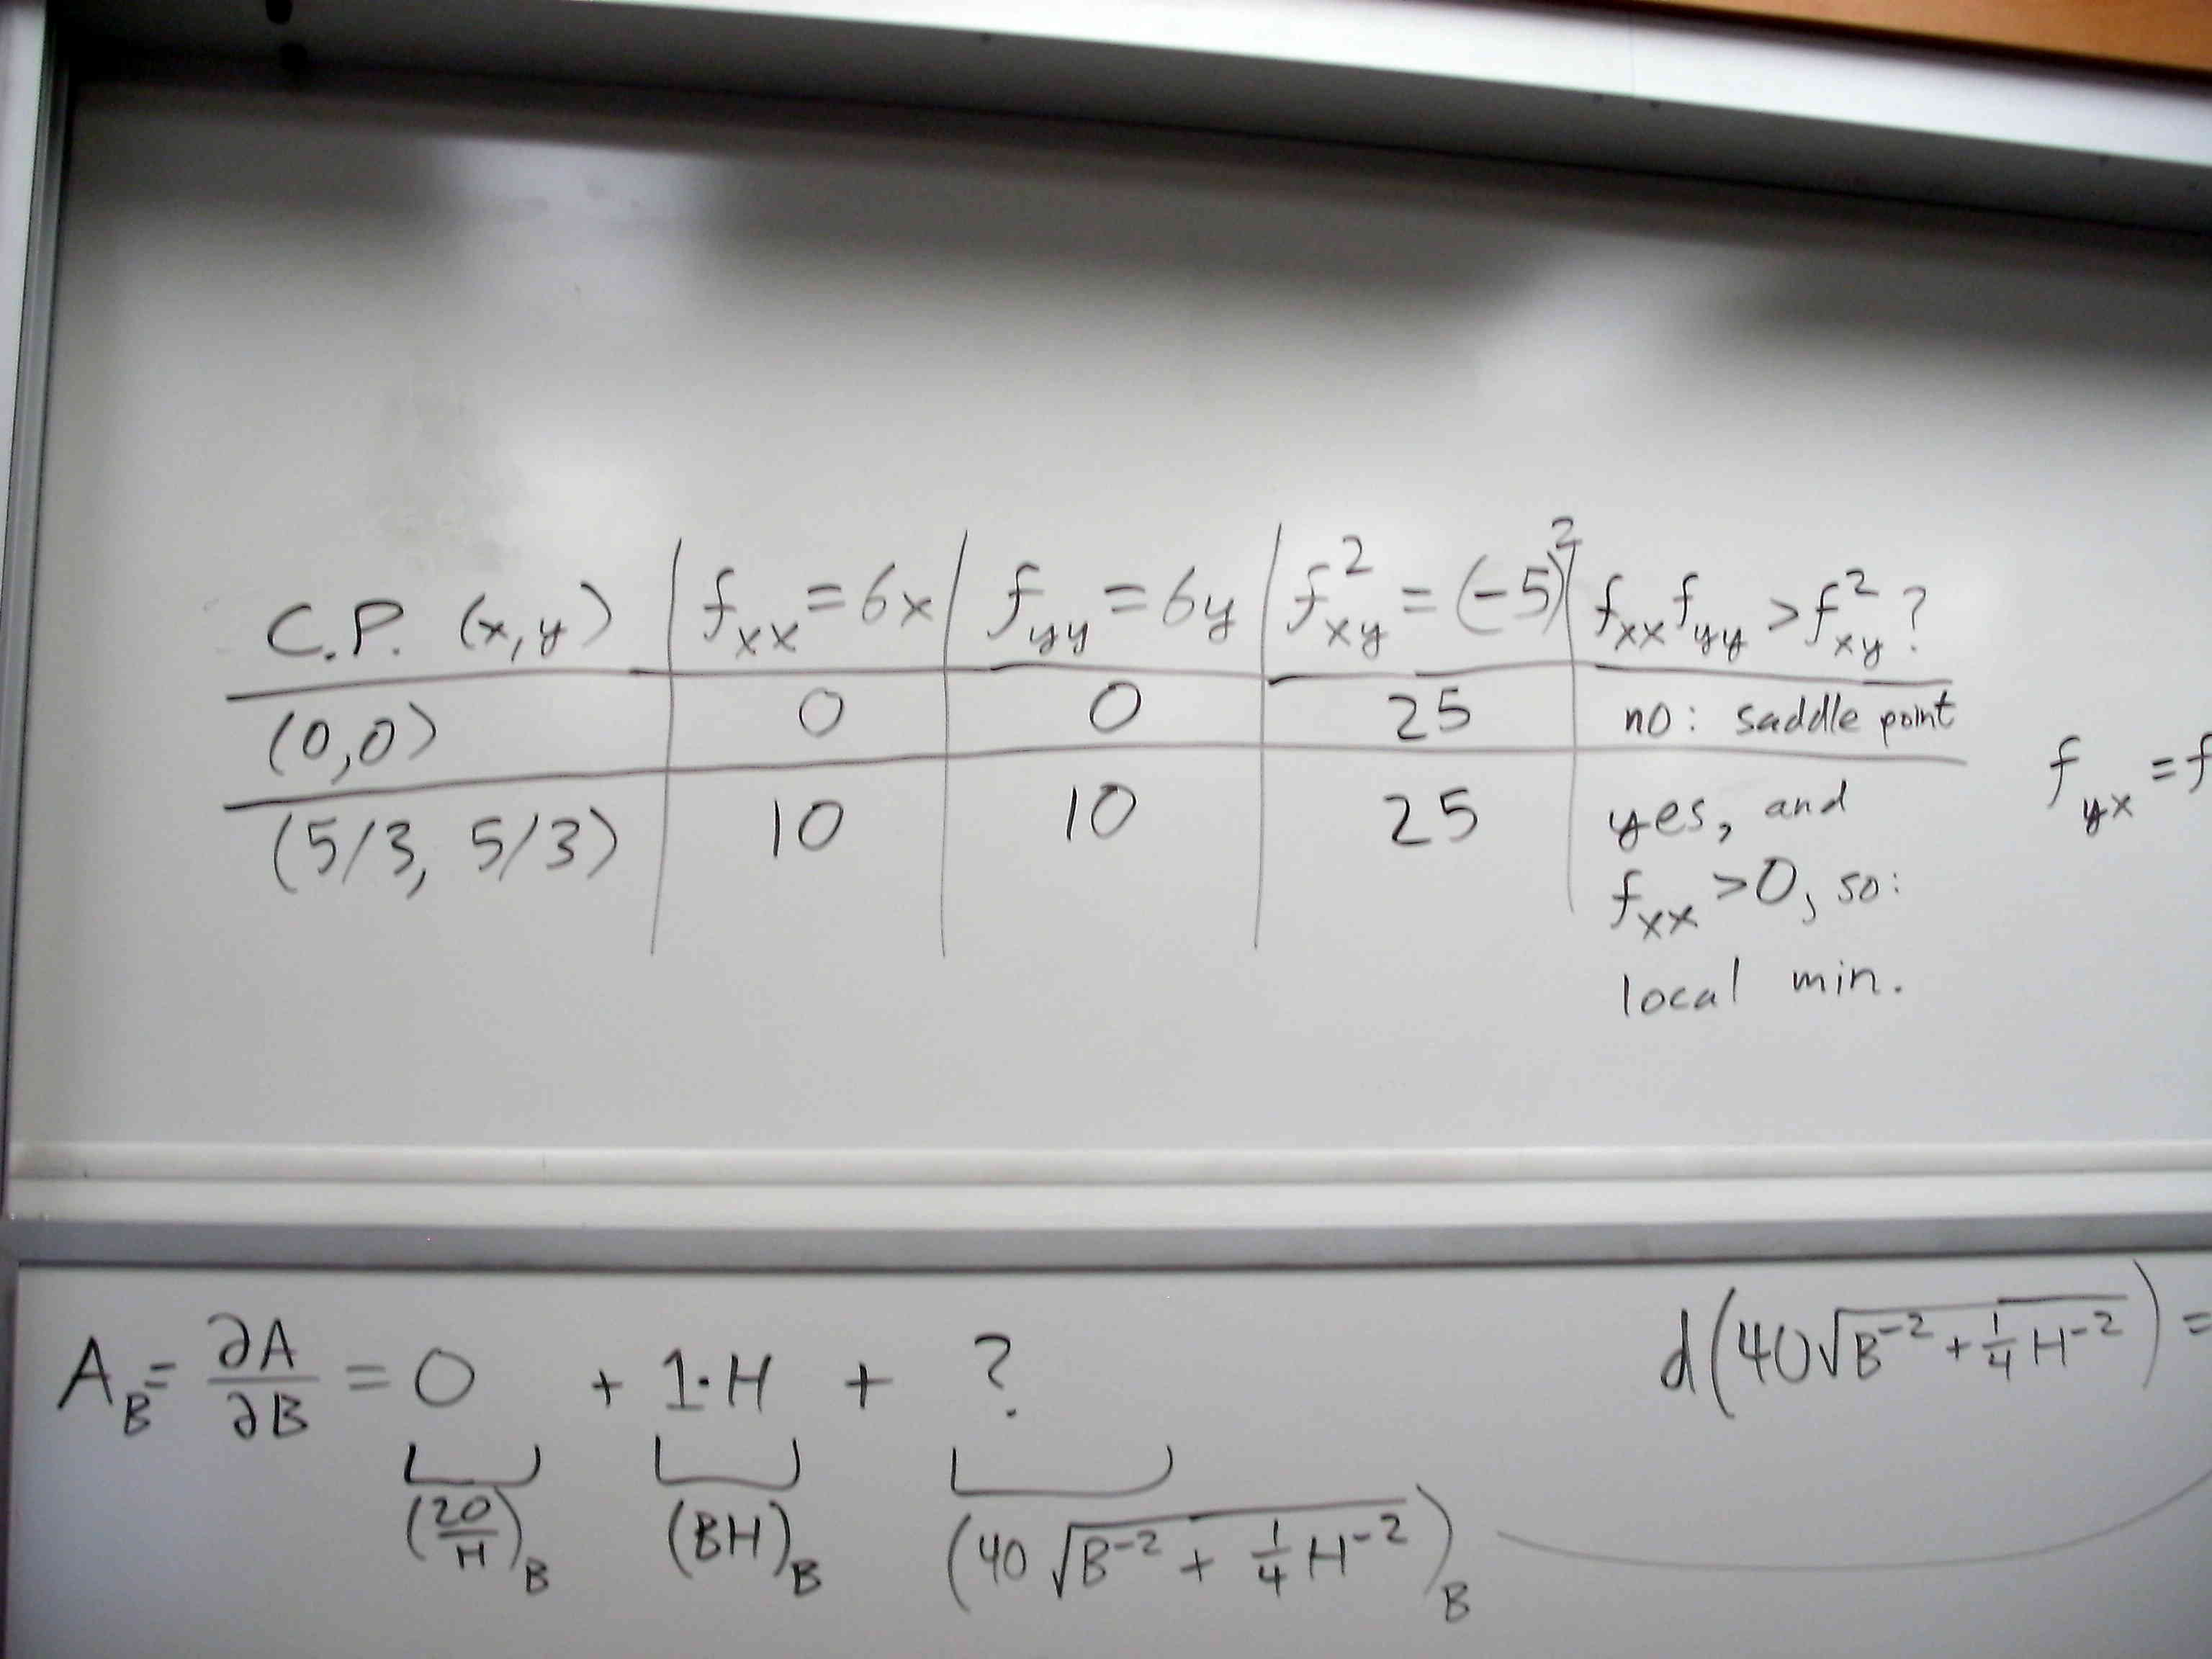 C.P. (x,y) | f_xx = 6x | f_yy = 6y | f²_xy = (-5)² | f_xx f_yy > f²_xy ?
(0,0) | 0 | 0 | 25 | no: saddle point
(5/3, 5/3) | 10 | 10 | 25 | yes, and
f_xx > 0, so:
local min.
f_yx = f
A_B = ∂A/∂B = 0 + 1·H + ?
(20/H)_B (BH)_B (40 √(B⁻² + 1/4 H⁻²))_B
d(40√(B⁻² + 1/4 H⁻²)) =